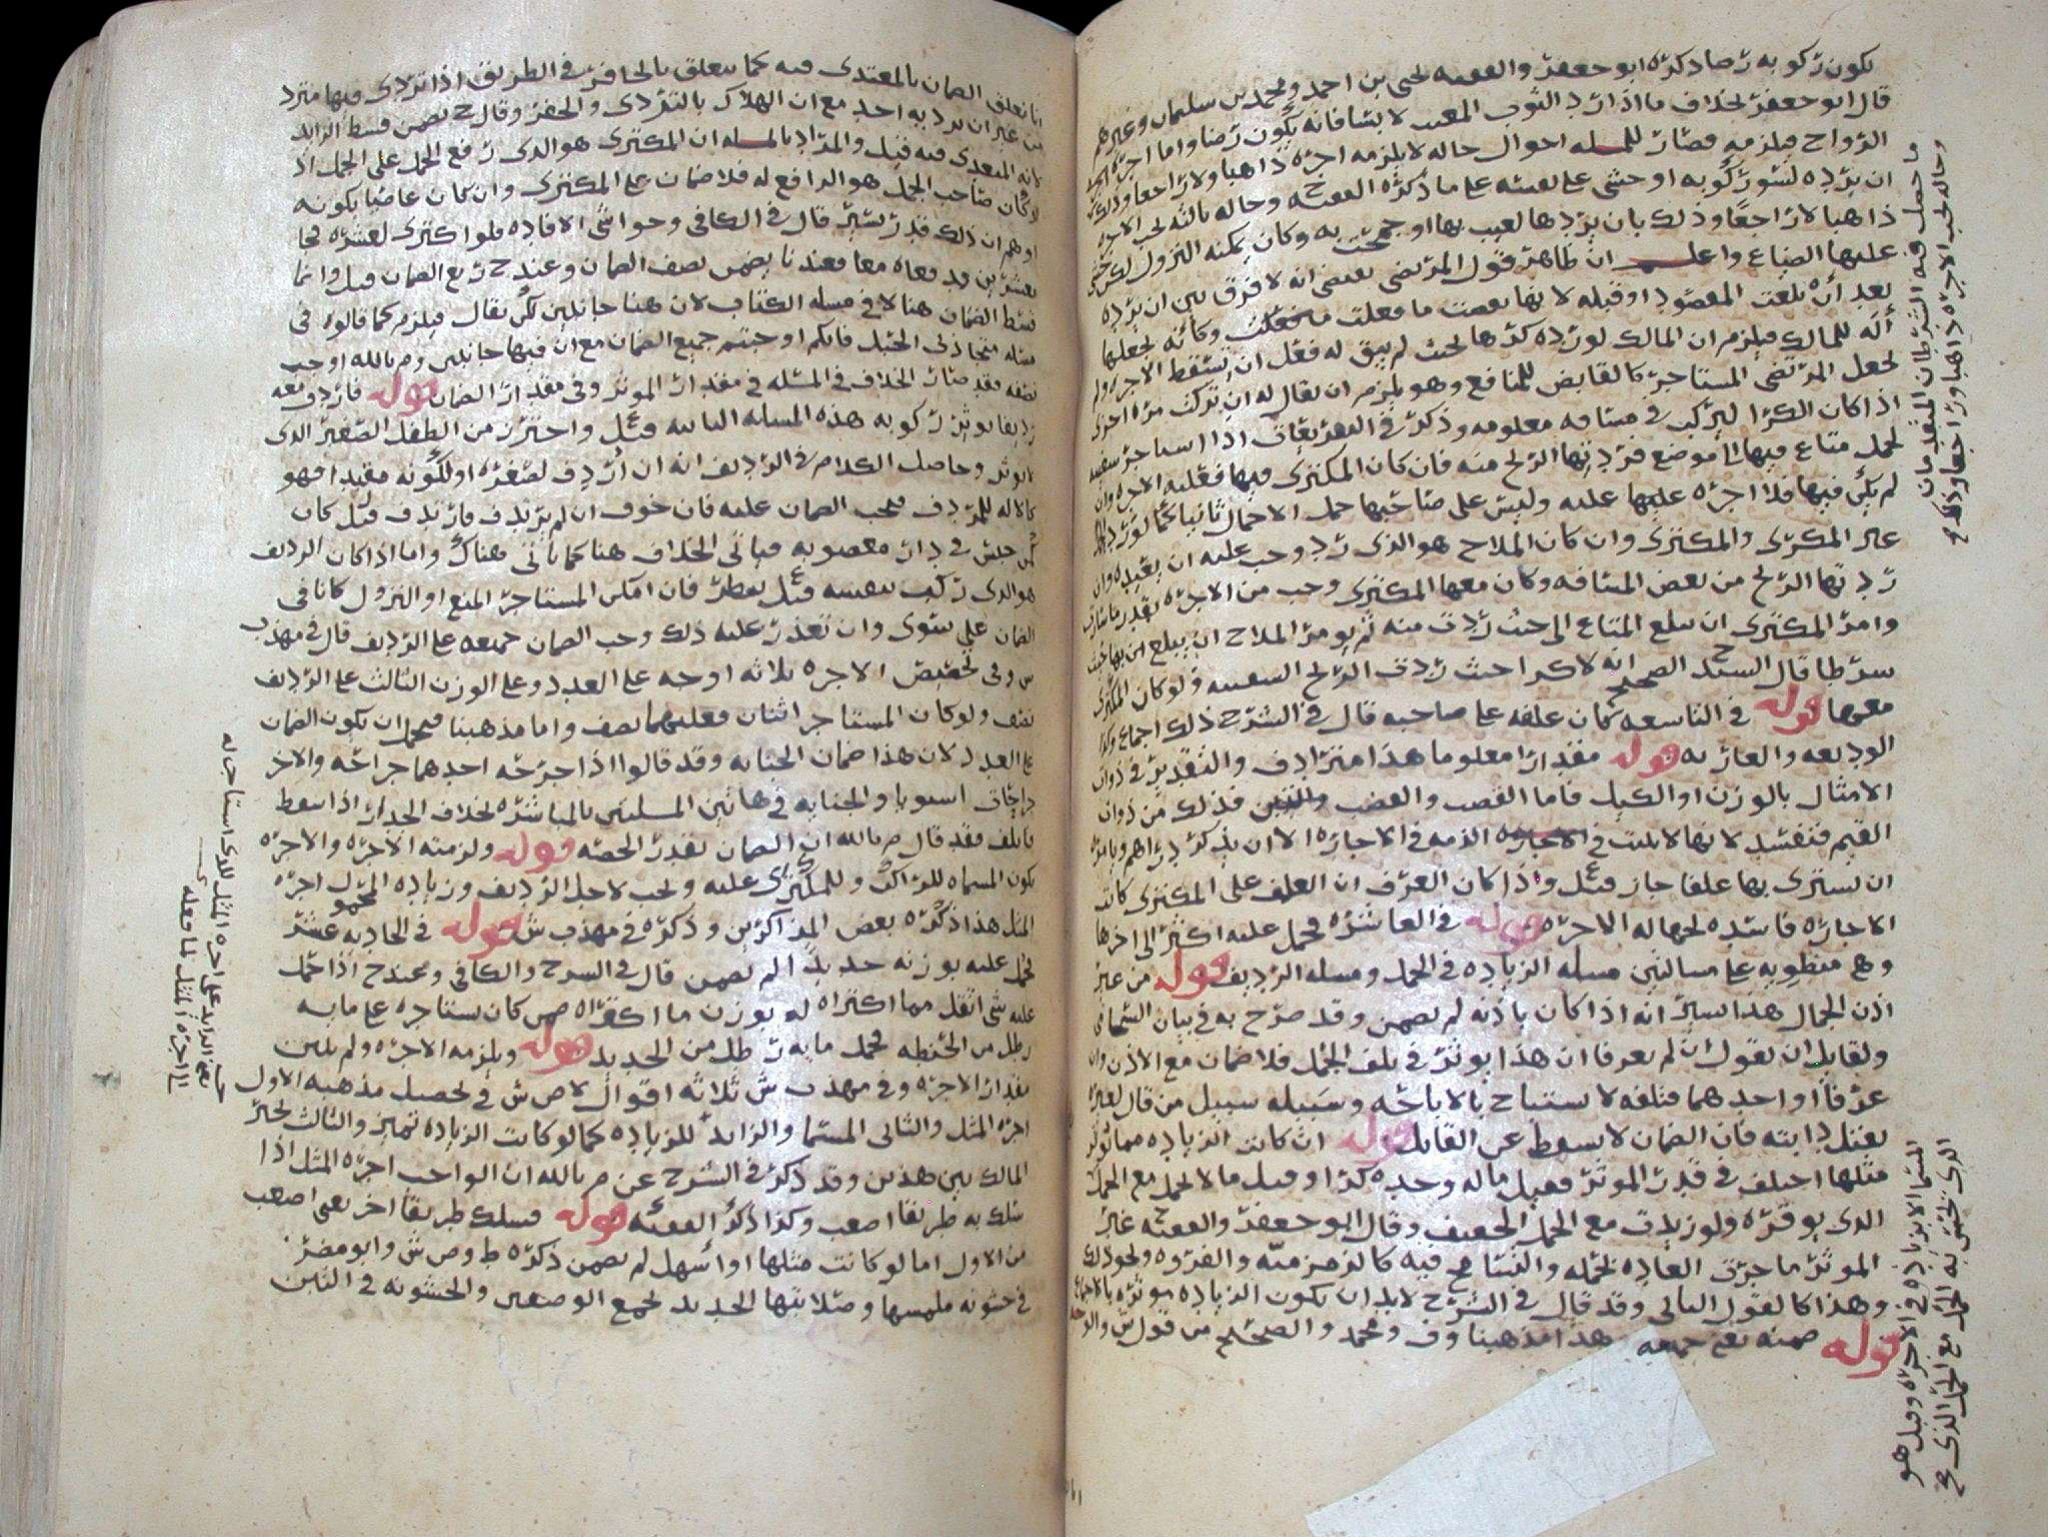 يكون ركوبه رضا ذكره ابو جعفر والفقيه يحيى بن احمد ومحمد بن سليمان وغيرهم
قال ابو جعفر بخلاف ما اذا رد الثوب المعيب لابسا فانه يكون رضا واما اجرة
الرواح فيلزمه فصار للمسله احوال حاله لا يلزمه اجره ذاهبا ولا راجعا وذلك
ان يرده لسو ركوبه او خشي على نفسه على ما ذكره الفقيه ح وحاله بالثه يجب الاجره
ذاهبا لا راجعا وذلك بان يردها لعيب بها او جمحت به وكان يمكنه النزول لكن خشي
عليها الضياع واعلم ان ظاهر قول المرتضى يقتضي انه لا فرق بين ان يرده
بعد ان بلغت المقصود او قبله لانها نقضت ما فعلت وكانه يجعلها
اله للمالك فيلزم ان المالك لو رده كرها بحيث لم يبق له فعل ان تسقط الاجره ولم
يجعل المرتضى المستاجر كالقابض للمنافع وهو يلزم ان يقال له ان يركب مرة اخرى
اذا كان الكرا ليركب في مسافه معلومه وذكر في التفريعات اذا استاجر سفينه
لحمل متاع فيها الى موضع فردتها الريح منه فان كان المكتري فيها فعليه الاجره وان
لم يكن فيها فلا اجره عليها عليه وليس على صاحبها حمل الاحمال ثانيا كما لو رد
غير المكري والمكتري وان كان الملاح هو الذي رد وجب عليه ان يعيده وان
ردتها الريح من بعض المسافه وكان معها المكتري وجب من الاجره بقدر ما سارت
وامر المكتري ان يبلغ المتاع الى حيث ردت منه ثم يومر الملاح ان يبلغ
سرطا قال السيد ح الصحيح انه لا كرا حيث ردت الريح السفينه ولو كان المكتري
معها قوله في التاسعه كان علفه على صاحبه قال في الشرح ذلك اجماع وكذا
الوديعه والعاريه قوله مقدارا معلوما هذا مترادف والتقدير في ذوات
الامثال بالوزن او الكيل فاما القصب والقضب والتبن فذلك من ذوات
القيم فتفسد لانها لا يثبت في الذمه في الاجاره الا ان يذكر دراهم ويامره
ان يشتري بها علفا جاز قيل ع واذا كان العرف ان العلف على المكتري كانت
الاجاره فاسده لجهاله الاجره قوله في العاشره فحمل عليه اكثر الى اخرها
وهي منطويه على مسالتين مسله الزياده في الحمل ومسله الرديف قوله من غير
اذن الجمال هذا يشير انه اذا كان باذنه لم يضمن وقد صرح به في بيان السحامي
ولقابل ان يقول ان لم يعرفا ان هذا يوثر في تلف الجمل فلا ضمان مع الاذن وان
عرفا او احدهما فتلفه لا يستباح بالاباحه وسبيله سبيل من قال لغيره
بقتل دابته فان الضمان لا يسقط عن القاتل قوله ان كانت الزياده مما يوثر
مثلها اختلف في قدر الموثر فقيل ماله وحده كرا وقيل ما لا يحمل مع الحمل
الذي يوقره ولو زيدت مع الحمل الخفيف وقال ابو جعفر والفقيه ح غير
الموثر ما جرت العاده بحمله والتسامح فيه كالزمزميه والفروه ونحو ذلك
وهذا كالقول الثاني وقد قال في الشرح لابد ان يكون الزياده موثره بالاجماع
قوله ضمنه يعني جميعه هذا مذهبنا وف ومحمد والصحيح من قول ش
ما حصل فيه الشرطان المتقدمان
وحاله يجب الاجره ذاهبا وراجعا وذلك مع
المسما الا بزياده في الاجره وقيل هو
الذي يختل به الحمل مع الحمل الذي مع
انا نعلق الضمان بالمعتدى فيه كما يتعلق بالحافر في الطريق اذا تردى فيها مترد
من غير ان يرد به احد مع ان الهلاك بالتردي والحفر وقال ح يضمن قسط الزايد
لانه المتعدى فيه قيل والمراد بالمسله ان المكتري هو الذي رفع الحمل على الجمل اذ
لو كان صاحب الجمل هو الرافع له فلا ضمان على المكتري وان كان عاصيا بكونه
اوهم ان ذلك قدر يسير قال في الكافي وحواشي الافاده فلو اكترى لعشره فجا
بعشرين ودفعاه معا فعندنا يضمن نصف الضمان وعند ح ربع الضمان قيل وانما
قسط الضمان هنا لا في مسله الكتاب لان هنا جانبين لكن يقال فيلزم كما قالوه في
مسله اتجاذب الحبل فانكم اوجبتم جميع الضمان مع ان فيها جانيين وم بالله اوجب
نصفه فقد صار الخلاف في المسله في مقدار الموثر وفي مقدار الضمان قوله فاردف معه
رديفا يوثر ركوبه هذه المسله الثانيه قيل ع واحترز من الطفل الصغير الذي
لا يوثر وحاصل الكلام في الرديف انه ان اردف لصغره او لكونه مقيدا فهو
كالاله للمردف فيجب الضمان عليه فان خوف ان لم يرتدف فارتدف قيل كان
كمن حبس في دار مغصوبه فياتي الخلاف هنا كما ياتي هناك واما اذا كان الرديف
هو الذي ركب بنفسه قيل ع ينظر فان امكن المستاجر المنع او النزول كانا في
الضمان على سوى وان تعذر عليه ذلك وجب الضمان جميعه على الرديف قال في مهذب
ش وفي تحصيص الاجره ثلاثه اوجه على العدد وعلى الوزن الثالث على الرديف
نصف ولو كان المستاجر اثنان فعليهما نصف واما مذهبنا فيحتمل ان يكون الضمان
على العدد لان هذا ضمان الجنايه وقد قالوا اذا جرحه احدهما جراحه والاخر
جراحات استويا والجنايه في هاتين المسلتين بالمباشره بخلاف الجدار اذا سقط
فاتلف فقد قال م بالله ان الضمان بقدر الحصه قوله ولزمته الاجره والاجره
يكون المسماه للراكب وللمكتري عليه ويجب لاجل الرديف وزياده المحمول اجره
المثل هذا ذكره بعض المذاكرين وذكره في مهذب ش قوله في الحاديه عشر
فحمل عليه بوزنه حديدا لم يضمن قال في الشرح والكافي وعند ح اذا حمل
عليه شي اثقل مما اكتراه له بوزن ما اكتراه ضمن كان يستاجره على مايه
رطل من الحنطه فحمل مايه رطل من الحديد قوله ويلزمه الاجره ولم يبين
مقدار الاجره وفي مهذب ش ثلاثه اقوال لاص ش في تحصيل مذهبه الاول
اجره المثل والثاني المسما والزايد للزياده كما لو كانت الزياده تميز والثالث يخير
المالك بين هذين وقد ذكر في الشرح عن م بالله ان الواجب اجره المثل اذا
سلك به طريقا اصعب وكذا ذكر الفقيه ح قوله فسلك طريقا اخر يعني اصعب
من الاول اما لو كانت مثلها او اسهل لم يضمن ذكره ط وص ش وابو مضر
في خشونه ملمسها وصلابتها الحديد يجمع الوصفين والخشونه في التبن
يعني الزايد على اجره المثل للذي استاجر له
الى اجره المثل لما فعله